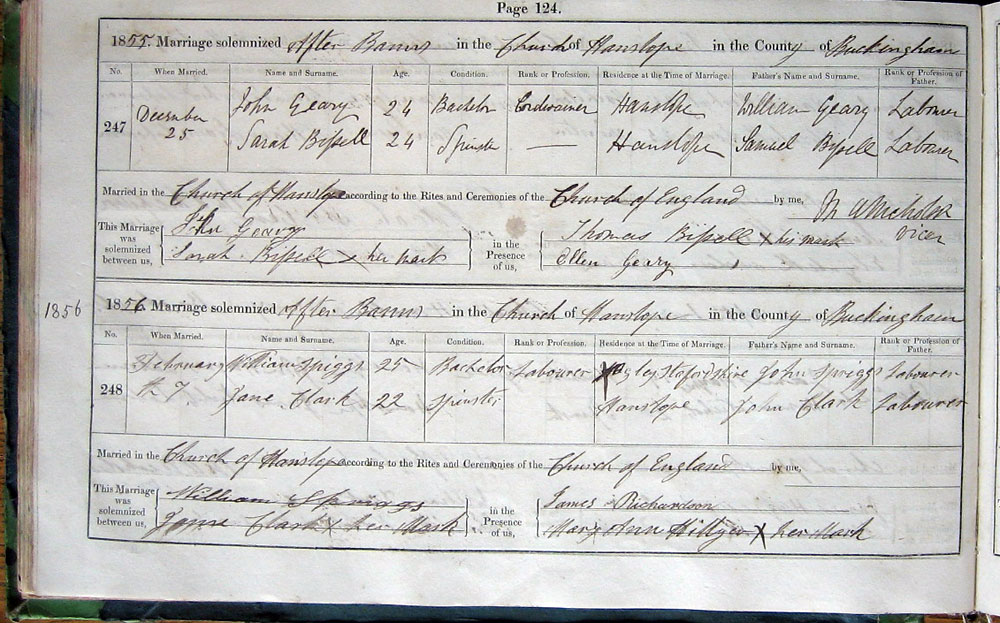 Page 124.
1855. Marriage solemnized After Banns in the Church of Hanslope in the County of Buckingham
No. When Married. Name and Surname. Age. Condition. Rank or Profession. Residence at the Time of Marriage. Father's Name and Surname. Rank or Profession of Father.
247 December 25 John Geary 24 Bachelor Cordwainer Hanslope William Geary Labourer
Sarah Bissell 24 Spinster — Hanslope Samuel Bissell Labourer
Married in the Church of Hanslope according to the Rites and Ceremonies of the Church of England by me,
This Marriage was solemnized between us, John Geary in the Presence of us, Thomas Bissell X his mark Vicar
Sarah Bissell X her mark Ellen Geary
1856
1856. Marriage solemnized After Banns in the Church of Hanslope in the County of Buckingham
No. When Married. Name and Surname. Age. Condition. Rank or Profession. Residence at the Time of Marriage. Father's Name and Surname. Rank or Profession of Father.
248 February 7 William Spriggs 25 Bachelor Labourer John Spriggs Labourer
Jane Clark 22 Spinster Hanslope John Clark Labourer
Married in the Church of Hanslope according to the Rites and Ceremonies of the Church of England by me,
This Marriage was solemnized between us, William Spriggs in the Presence of us, James Richardson
Jane Clark X her Mark Mary Ann X her Mark